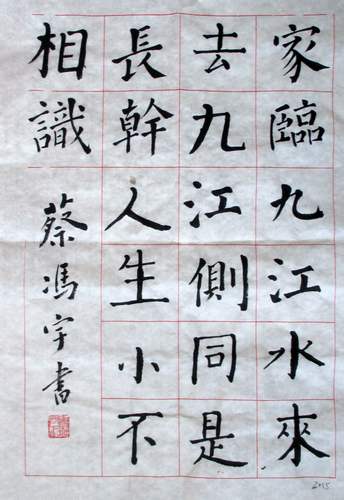 家臨九江水來
去九江側同是
長幹人生小不
相識
蔡馮宇書
2015